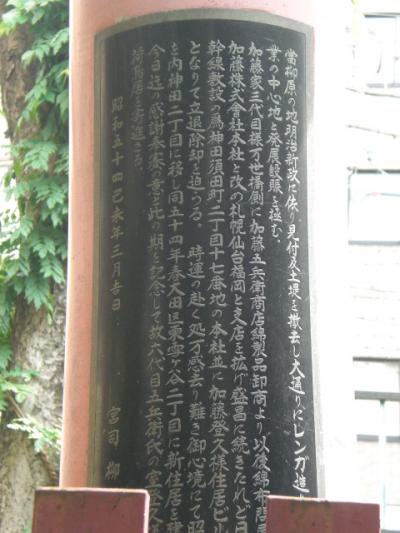 當柳原の地明治新政に依り見付及土堤を撤去し大通りにレンガ造
業の中心地と発展殷賑を極む。
加藤家三代目様万世橋側に加藤五兵衛商店綿製品卸商より以後綿布問屋
加藤株式會社本社と改め札幌仙台福岡と支店を拡げ盛昌に続きたれど日
幹線敷設の為神田須田町二丁目十七番地の本社並に加藤登久様住居ビル
となりて立退除却を迫つる。 時運の赴く処万感去り難き御心境にて昭
を内神田二丁目に移し同五十四年春大田区東雪谷二丁目に新住居を建
今日迄の感謝奉賽の意と此の期を記念して故六代目五兵衛氏の室登久
荷鳥居を寄進さる。
昭和五十四己未年三月吉日
宮司 柳